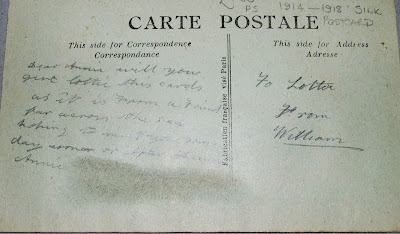 PS 1914-1918 SILK
POSTCARD
CARTE POSTALE
This side for Correspondence
Correspondance
This side for Address
Adresse
Dear Annie will you
give Lottie this cards
as it is from a friend
far across the sea
hoping to
day sooner or
Annie
Fabrication française visé Paris
To Lottie
From
William